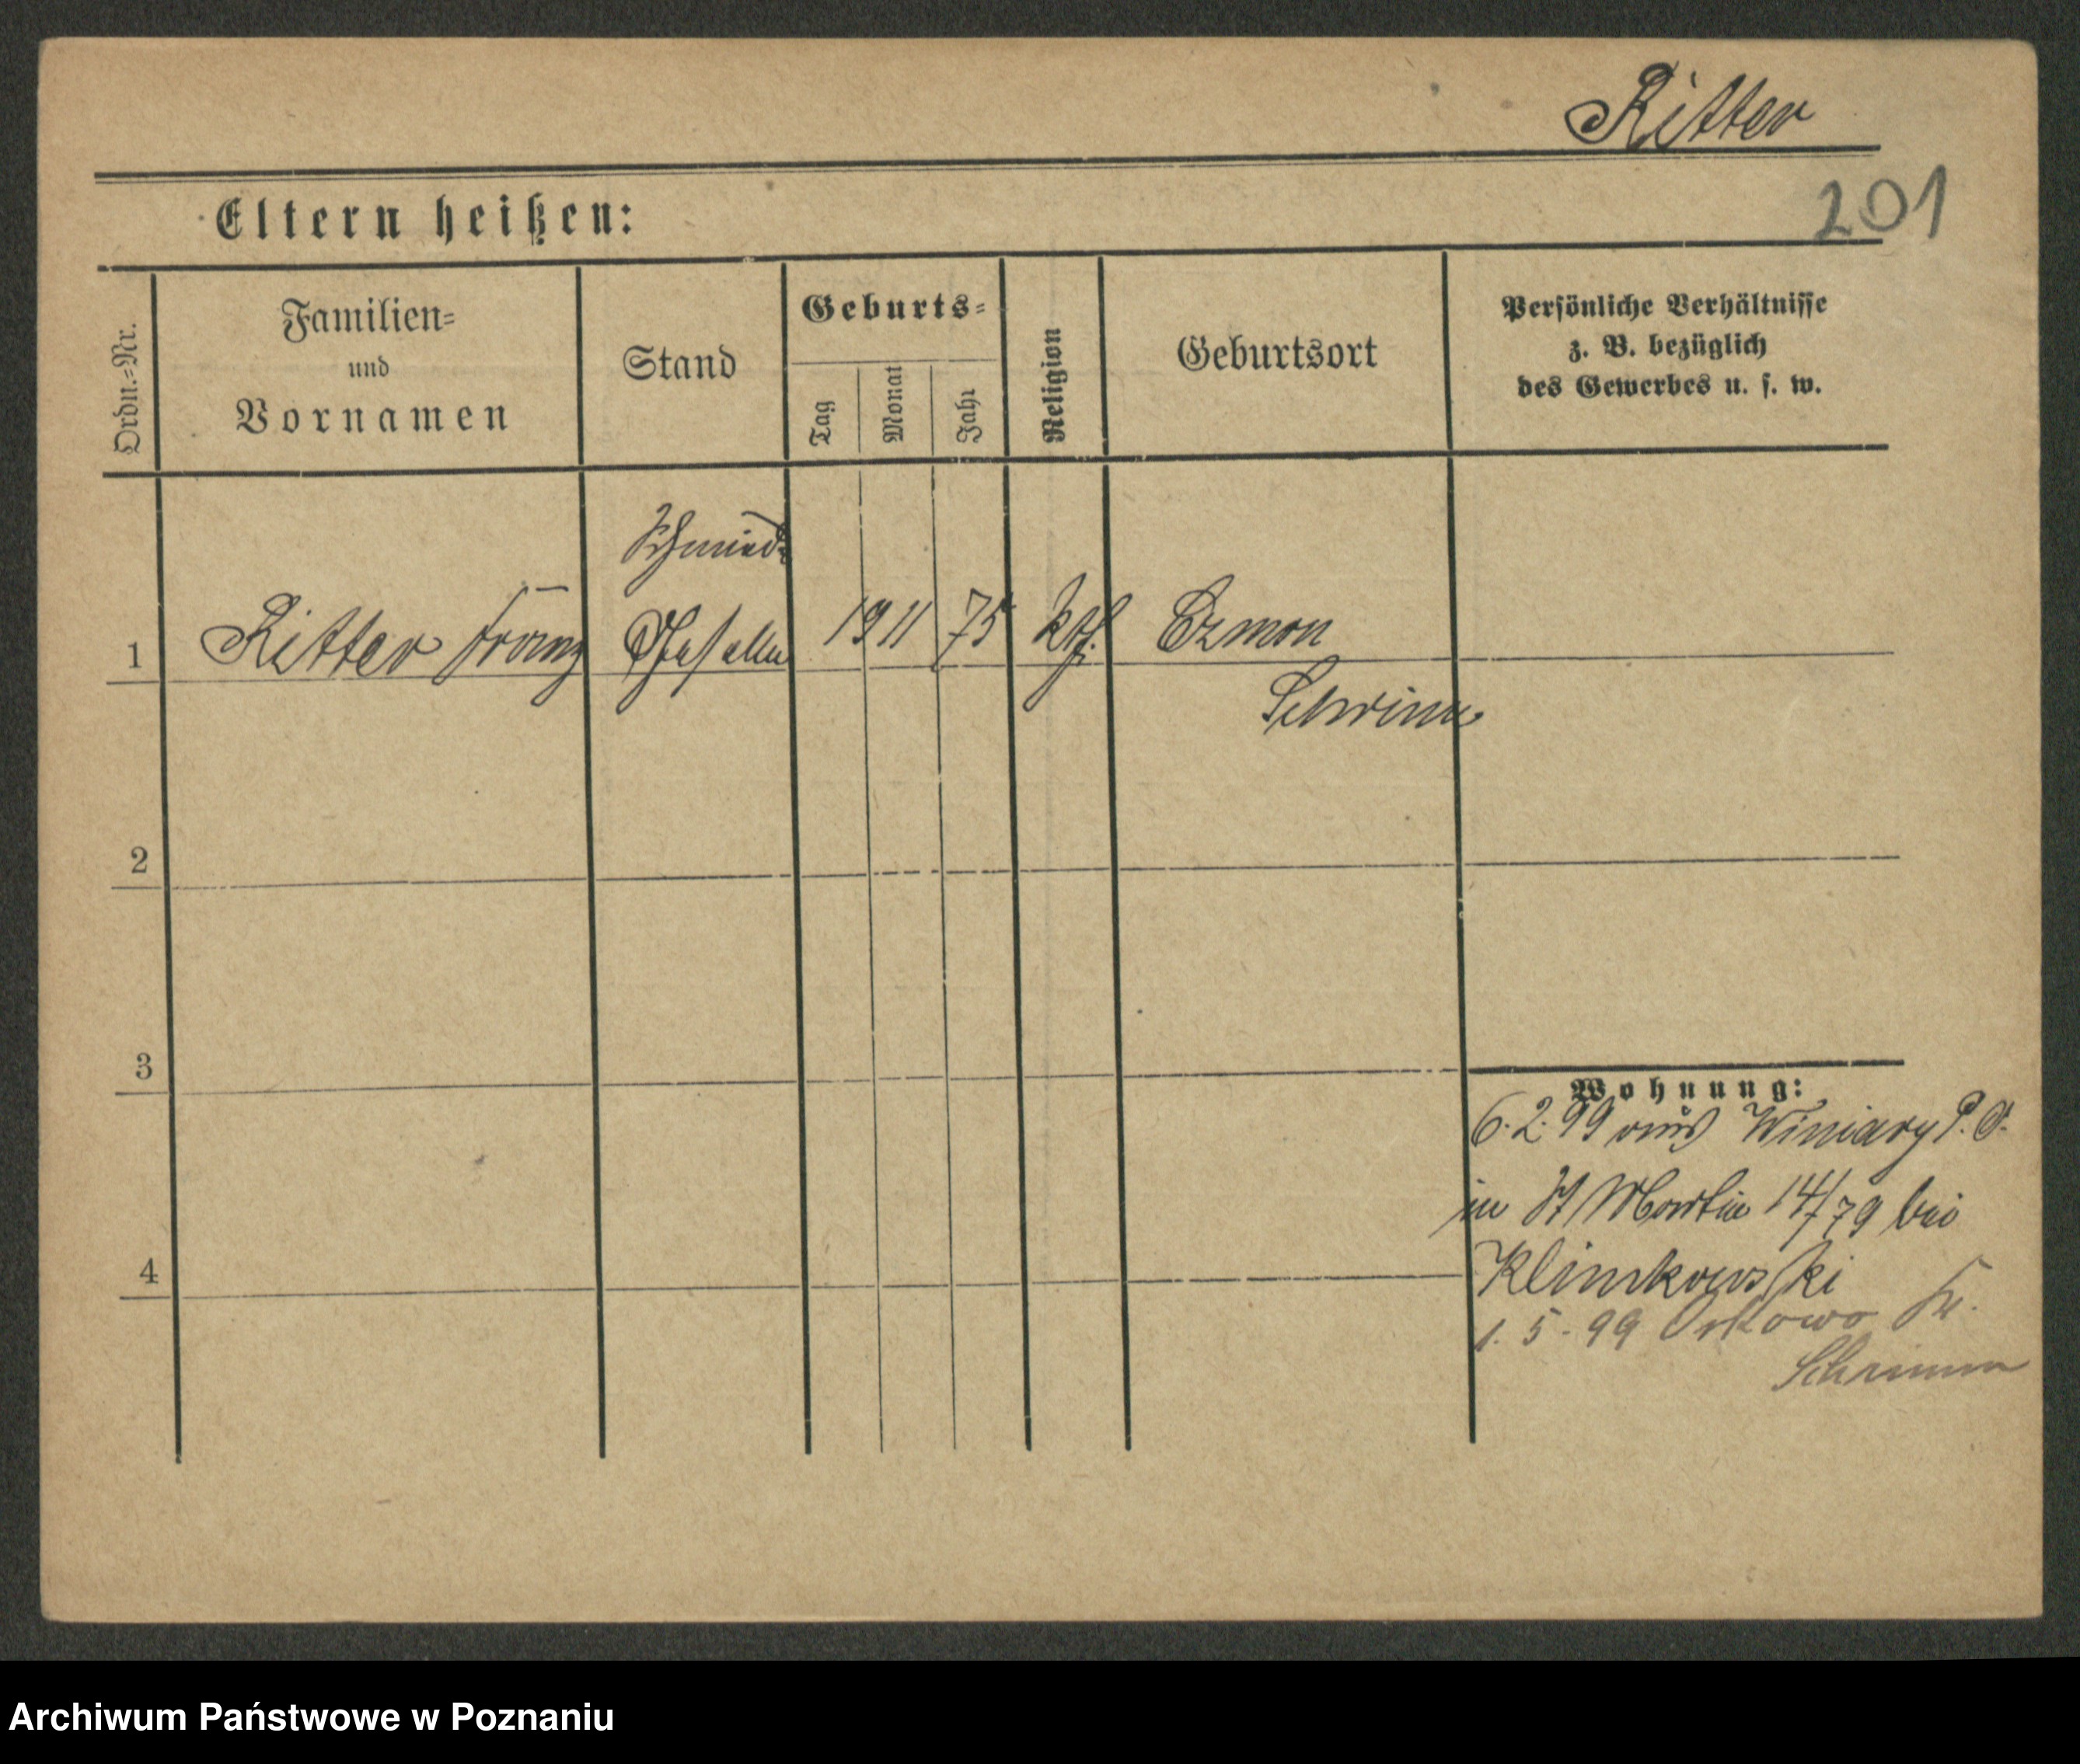 Ritter
201
Eltern heißen:
Ordn.=Nr.
Familien=
und
Vornamen
Stand
Geburts=
Tag
Monat
Jahr
Religion
Geburtsort
Persönliche Verhältnisse
z. B. bezüglich
des Gewerbes u. s. w.
Schmied=
1 Ritter Franz Geselle 19 11 75 kth. Ezmon
Schrimm
2
3
Wohnung:
6. 2. 99 aus Winiary P. O.
in St Martin 14/79 bei
4
Klimkowski
1. 5. 99 Orkowo Kr.
Schrimm
Archiwum Państwowe w Poznaniu